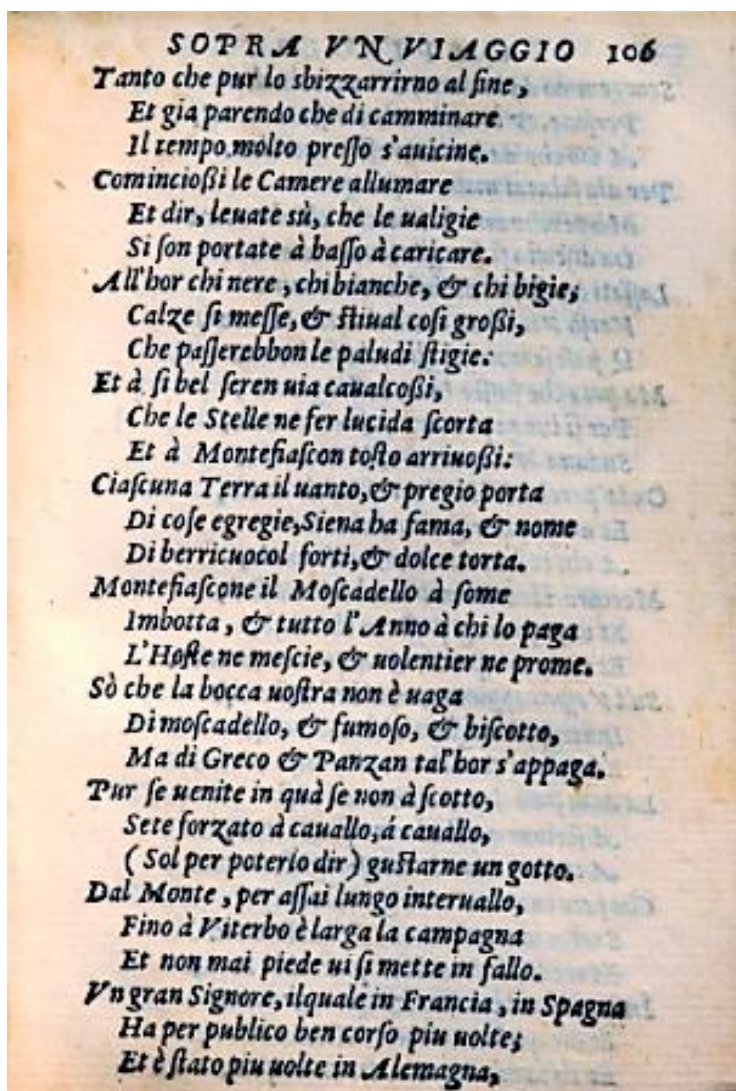 SOPRA VN VIAGGIO 106
Tanto che pur lo sbizzarrirno al fine,
Et gia parendo che di camminare
Il tempo molto presso s'auicine.
Cominciossi le Camere allumare
Et dir, leuate sù, che le ualigie
Si son portate à basso à caricare.
All'hor chi nere, chi bianche, & chi bigie;
Calze si messe, & stiual cosi grossi,
Che passerebbon le paludi stigie:
Et à si bel seren uia caualcossi,
Che le Stelle ne fer lucida scorta
Et à Montefiascon tosto arriuossi:
Ciascuna Terra il uanto, & pregio porta
Di cose egregie, Siena ha fama, & nome
Di berricuocol forti, & dolce torta.
Montefiascone il Moscadello à some
Imbotta, & tutto l'Anno à chi lo paga
L'Hoste ne mescie, & uolentier ne prome.
Sò che la bocca uostra non è uaga
Di moscadello, & fumoso, & biscotto,
Ma di Greco & Panzan tal'hor s'appaga.
Pur se uenite in quà se non à scotto,
Sete forzato à cauallo, á cauallo,
(Sol per poterlo dir) gustarne un gotto.
Dal Monte, per assai lungo interuallo,
Fino à Viterbo è larga la campagna
Et non mai piede ui si mette in fallo.
Vn gran Signore, ilquale in Francia, in Spagna
Ha per publico ben corso piu uolte;
Et è stato piu uolte in Alemagna,